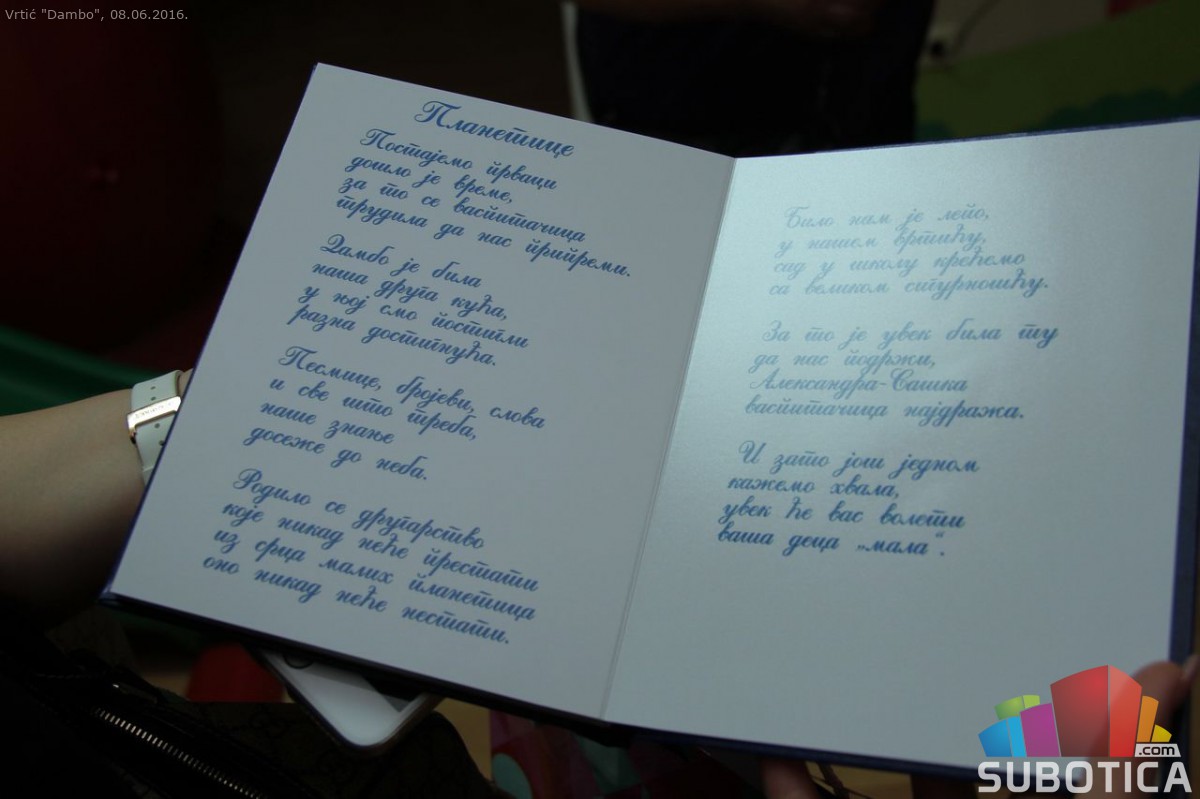 Vrtić "Dambo", 08.06.2016.
Планетице
Постајемо прваци
дошло је време,
за то се васпитачица
трудила да нас припреми.
Дамбо је била
наша друга кућа,
у њој смо постигли
разна достигнућа.
Песмице, бројеви, слова
и све што треба,
наше знање
досеже до неба.
Родило се другарство
које никад неће престати
из срца малих планетица
оно никад неће нестати.
Било нам је лепо,
у нашем вртићу,
сад у школу крећемо
са великом сигурношћу.
За то је увек била ту
да нас подржи,
Александра-Сашка
васпитачица најдража.
И зато још једном
кажемо хвала,
увек ће вас волети
ваша деца „мала“.
.com
SUBOTICA